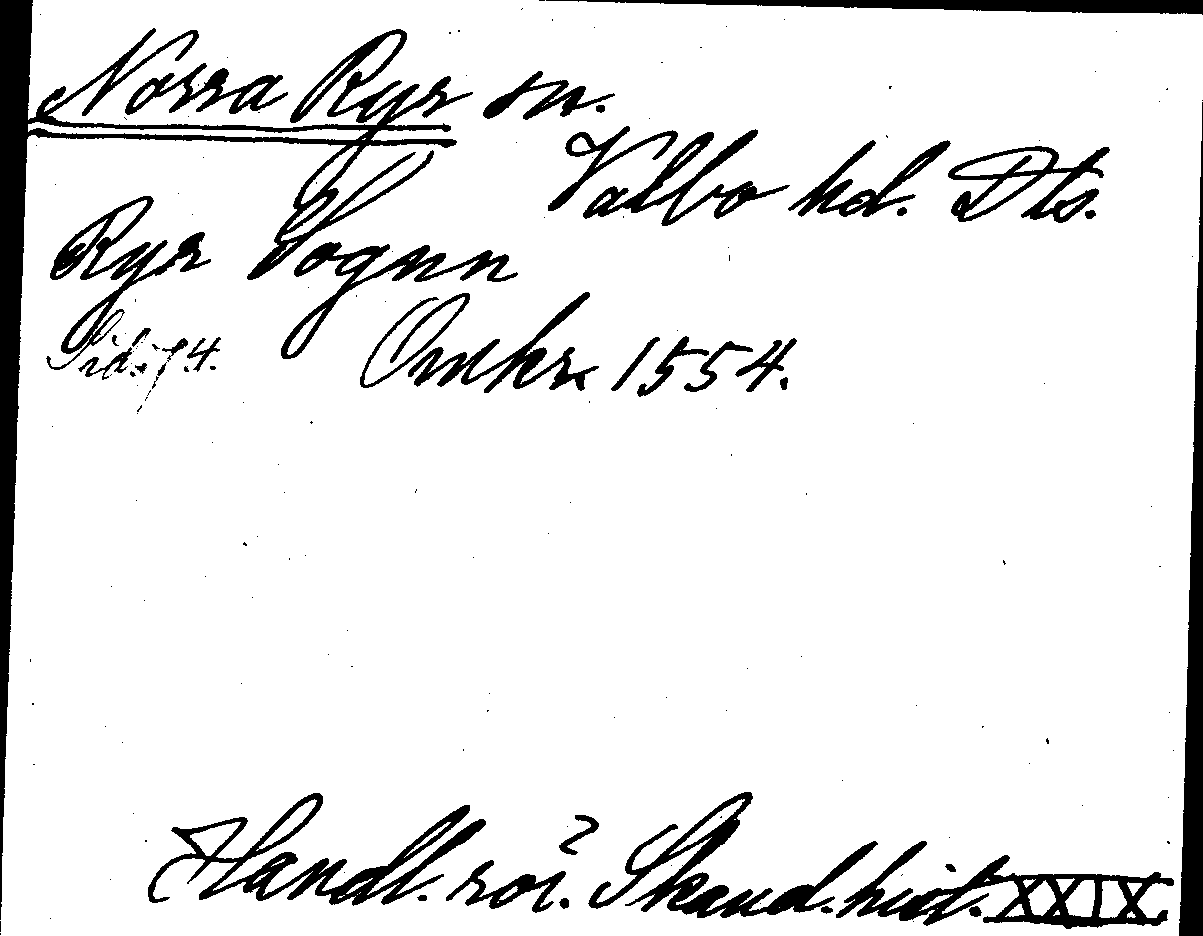 Norra Ryr sn.
Valbo hd. Dls.
Ryr Sognn
Sid. 74. Omkr. 1554.
Handl. rör. Skand. hist. XXIX.